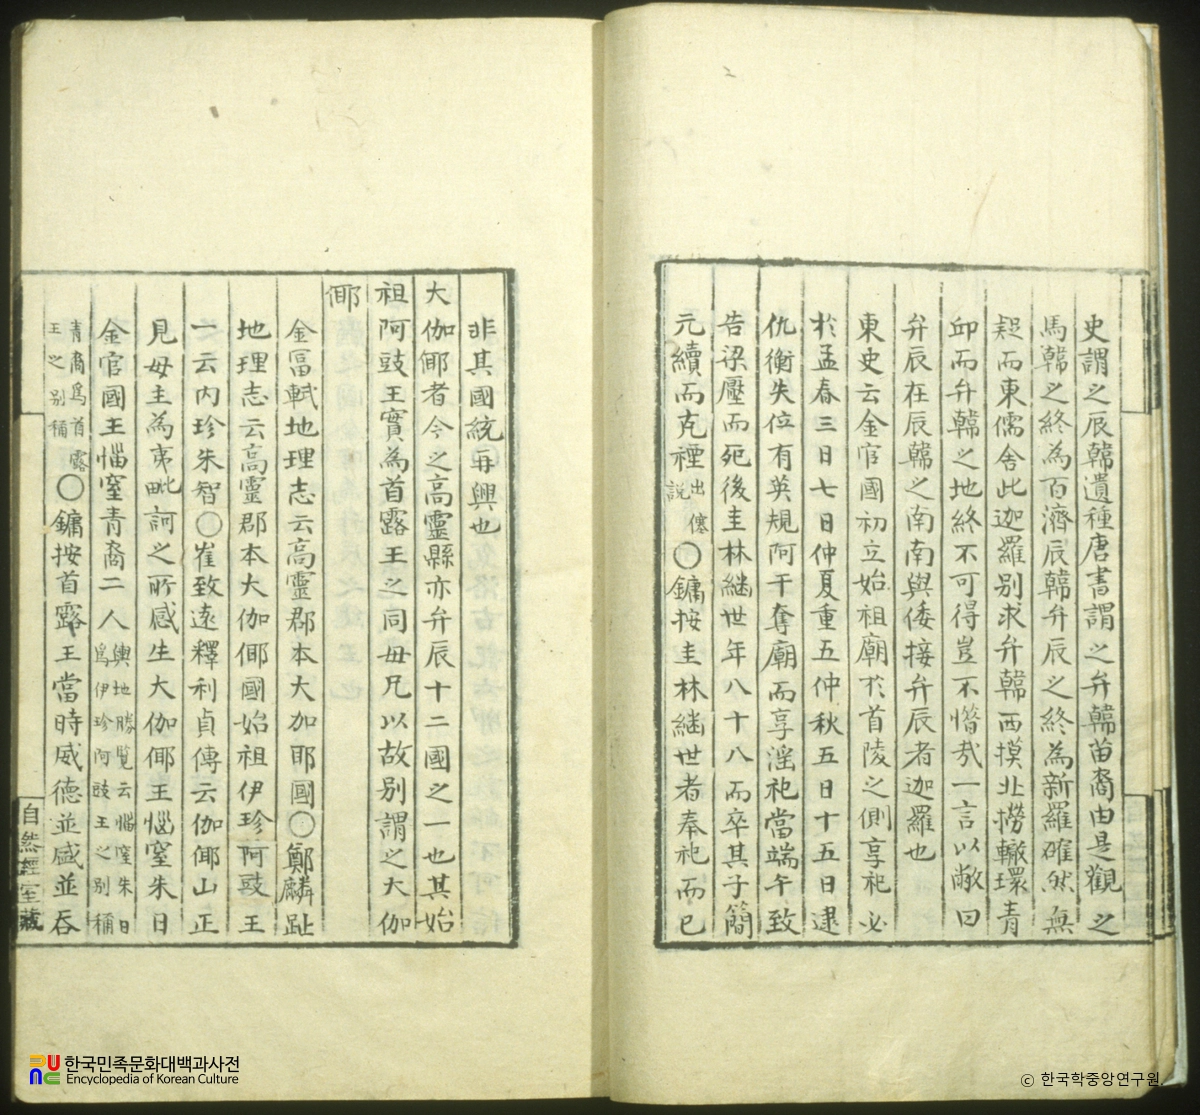 史謂之辰韓遺種唐書謂之弁韓苗裔由是觀之
馬韓之終為百濟辰韓弁辰之終為新羅確然無
疑而東儒舍此迦羅别求弁韓西摸北撈轍環青
邱而弁韓之地終不可得豈不憯㦲一言以敝曰
弁辰在辰韓之南南與倭接弁辰者迦羅也
東史云金官國初立始祖廟於首陵之側享祀必
於孟春三日七日仲夏重五仲秋五日十五日逮
仇衡失位有英規阿干奪廟而享淫祀當端午致
告梁壓而死後圭林継世年八十八而卒其子簡
元續而克禋出僿說〇鏞按圭林継世者奉祀而已
非其國統再興也
大伽倻者今之高靈縣亦弁辰十二國之一也其始
祖阿豉王實為首露王之同母兄以故别謂之大伽
倻
金富軾地理志云高靈郡本大加耶國〇鄭麟趾
地理志云高靈郡本大伽倻國始祖伊珍阿豉王
一云内珍朱智〇崔致遠釋利貞傳云伽倻山正
見母主為夷毗訶之所感生大伽倻王惱窒朱日
金官國王惱窒青裔二人輿地勝覧云惱窒朱日為伊珍阿豉王之别稱
青裔為首露王之别稱〇鏞按首露王當時威德並盛並吞
自然經室藏
한국민족문화대백과사전
Encyclopedia of Korean Culture
ⓒ 한국학중앙연구원